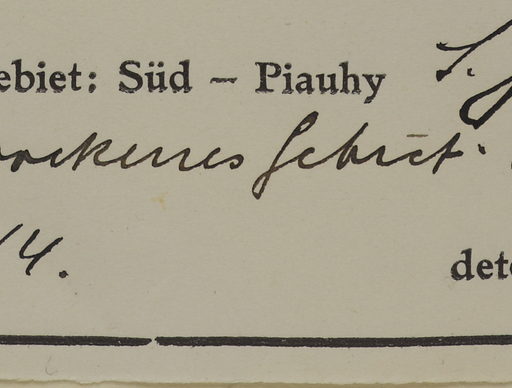 ebiet: Süd – Piauhy S.
ockenes Gebiet.
14.
det